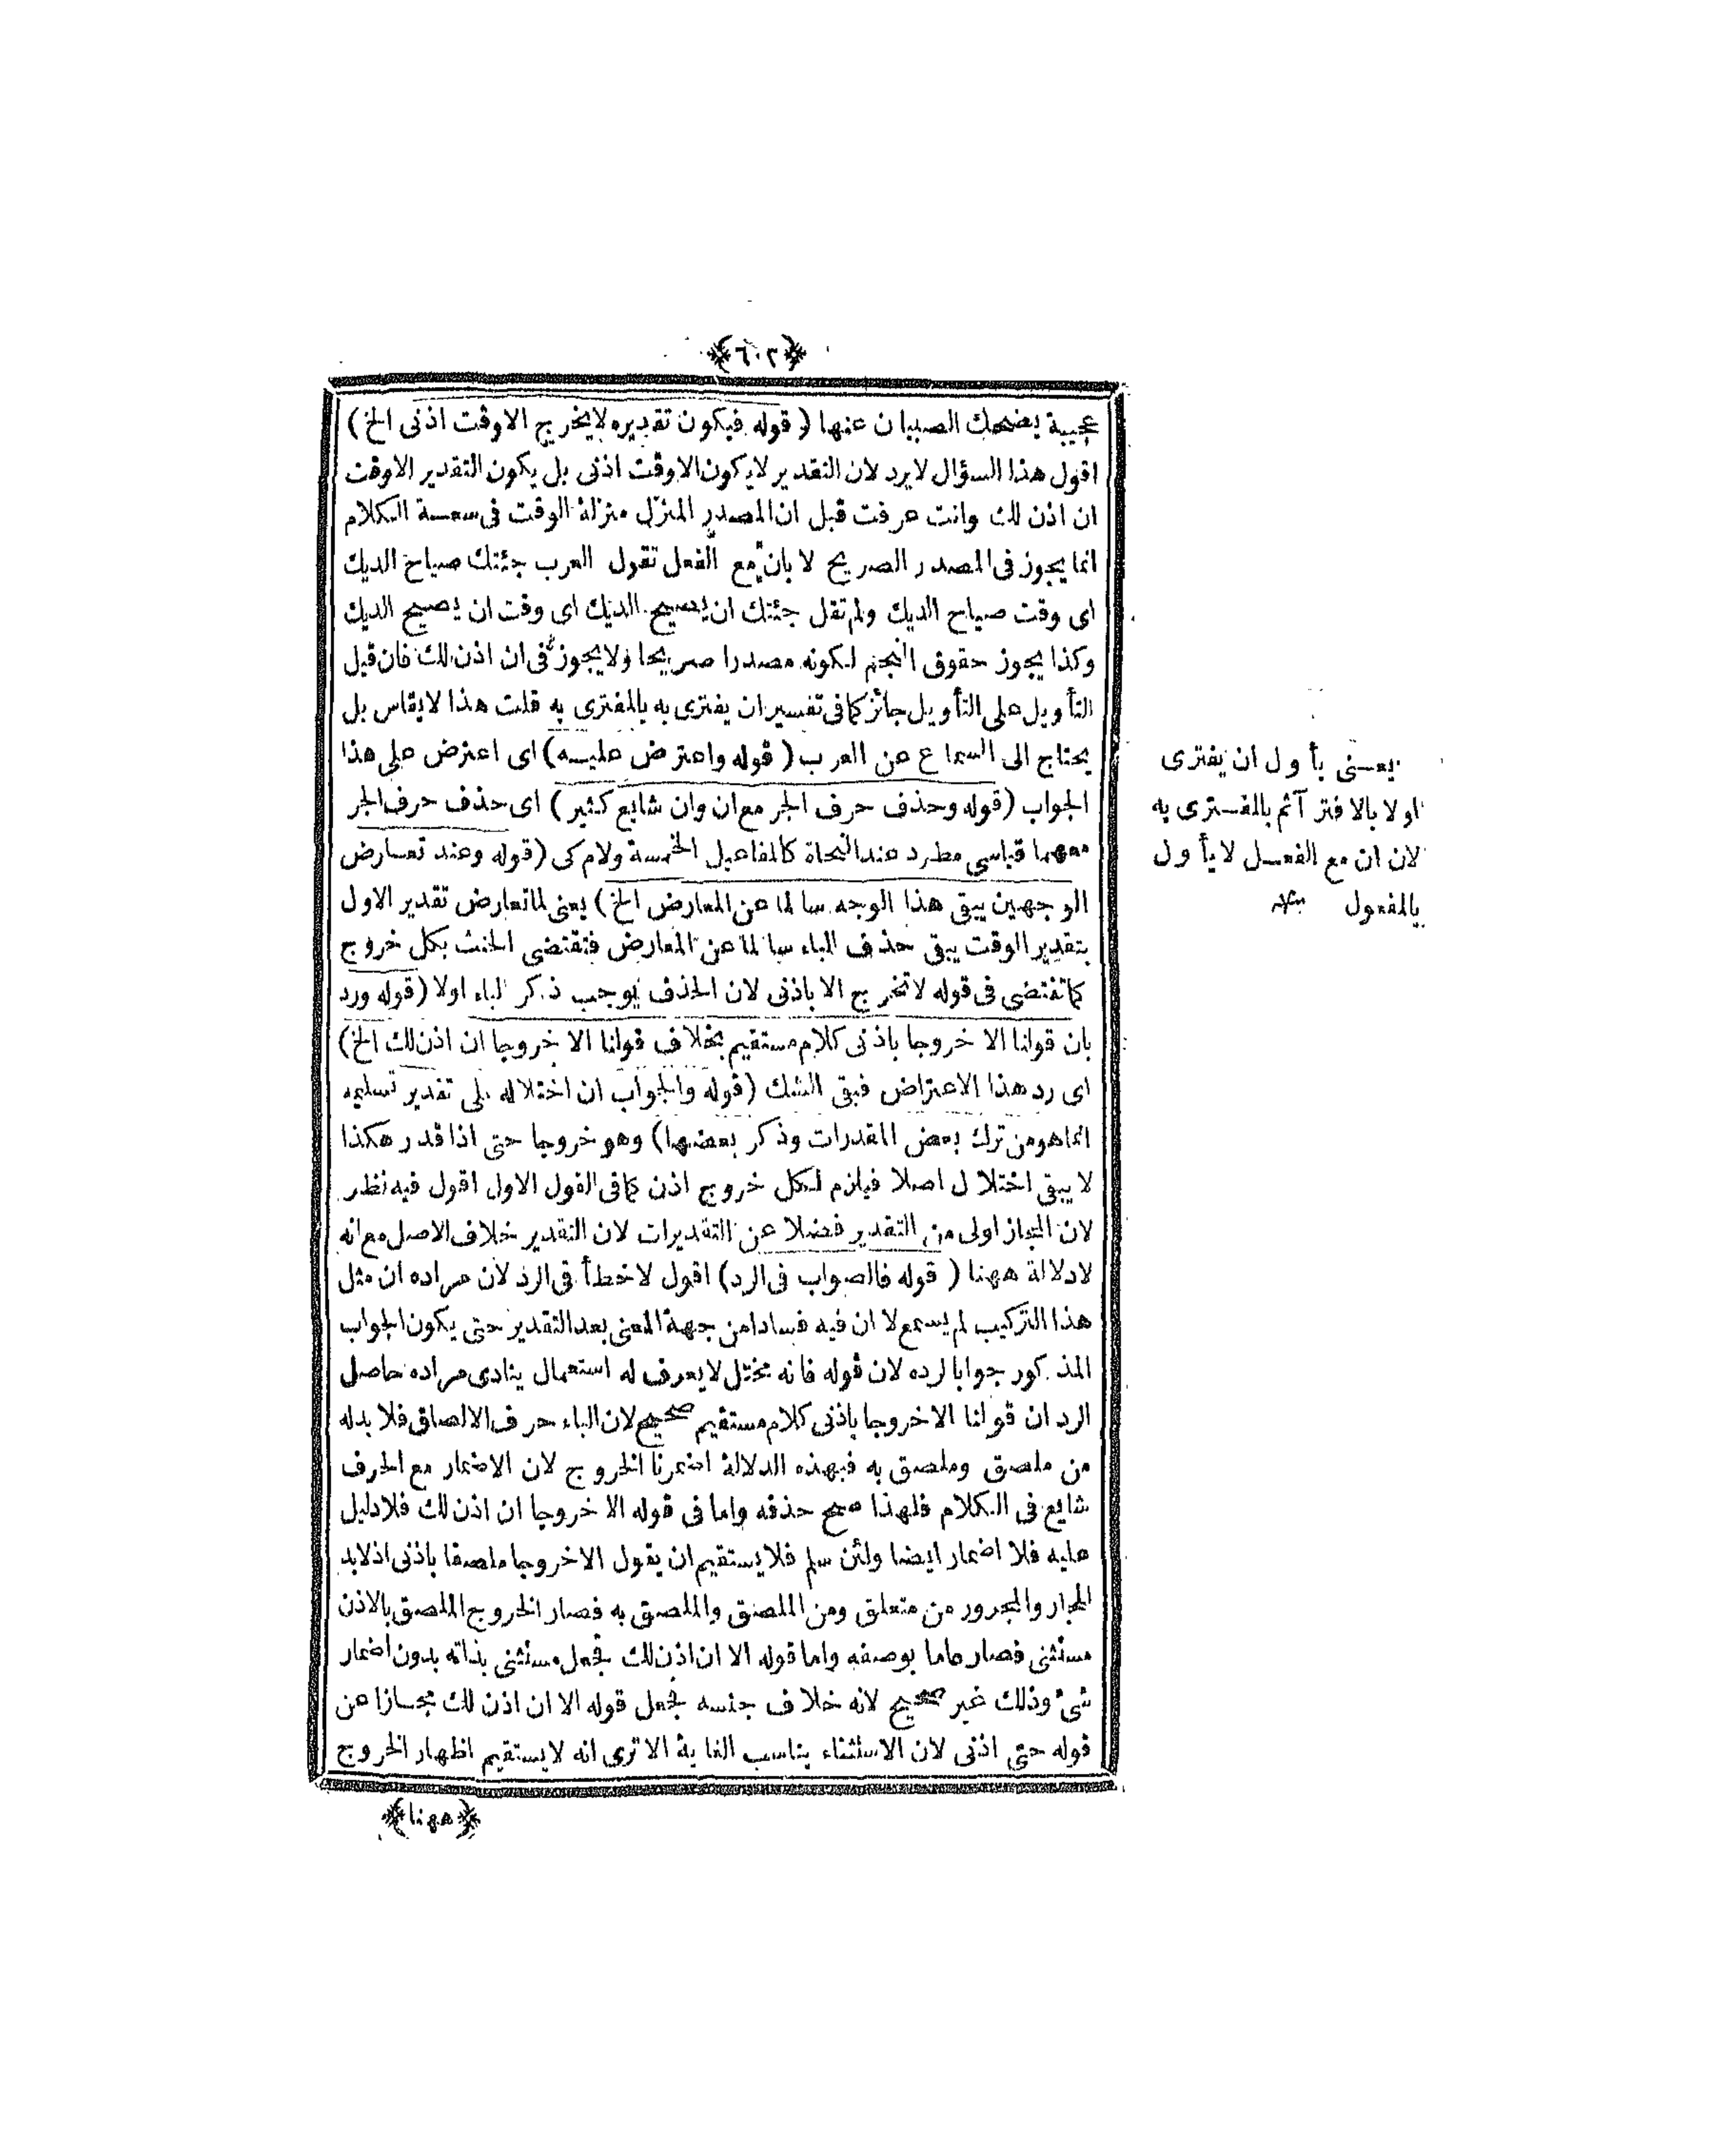 ﴿٦٠٢﴾
عجيبة يضحك الصبيان عنها ( قوله فيكون تقديره لا يخرج الا وقت اذنى الخ )
اقول هذا السؤال لا يرد لان التقدير لا يكون الا وقت اذنى بل يكون التقدير الا وقت
ان اذن لك وانت عرفت قبل ان المصدر المنزل منزلة الوقت فى سعة الكلام
انما يجوز فى المصدر الصريح لا بان مع الفعل تقول العرب جئتك صياح الديك
اى وقت صياح الديك ولم تقل جئتك ان يصيح الديك اى وقت ان يصيح الديك
وكذا يجوز حقوق النجم لكونه مصدرا صريحا ولا يجوز فى ان اذن لك فان قيل
التأويل على التأويل جائز كما فى تفسير ان يفترى به بالمفترى به قلت هذا لا يقاس بل
يحتاج الى السماع عن العرب ( قوله واعترض عليه ) اى اعترض على هذا
الجواب ( قوله وحذف حرف الجر مع ان وان شايع كثير ) اى حذف حرف الجر
معهما قياسى مطرد عند النحاة كالمفاعيل الخمسة ولام كى ( قوله وعند تعارض
الوجهين يبقى هذا الوجه سالما عن المعارض الخ ) يعنى لما تعارض تقدير الاول
بتقدير الوقت يبقى حذف الباء سالما عن المعارض فتقتضى الحنث بكل خروج
كما تقتضى فى قوله لا تخرج الا باذنى لان الحذف يوجب ذكر الباء اولا ( قوله ورد
بان قولنا الا خروجا باذنى كلام مستقيم بخلاف قولنا الا خروجا ان اذن لك الخ )
اى رد هذا الاعتراض فبقى الشك ( قوله والجواب ان اختلاله على تقدير تسليمه
انما هو من ترك بعض المقدرات وذكر بعضها ) وهو خروجا حتى اذا قدر هكذا
لا يبقى اختلال اصلا فيلزم لكل خروج اذن كما فى القول الاول اقول فيه نظر
لان المجاز اولى من التقدير فضلا عن التقديرات لان التقدير خلاف الاصل مع انه
لا دلالة ههنا ( قوله فالصواب فى الرد ) اقول لا خطأ فى الرد لان مراده ان مثل
هذا التركيب لم يسمع لا ان فيه فسادا من جهة المعنى بعد التقدير حتى يكون الجواب
المذكور جوابا لرده لان قوله فانه مختل لا يعرف له استعمال ينادى مراده حاصل
الرد ان قولنا الا خروجا باذنى كلام مستقيم صحيح لان الباء حرف الالصاق فلا بد له
من ملصق وملصق به فبهذه الدلالة اضمرنا الخروج لان الاضمار مع الحرف
شايع فى الكلام فلهذا صح حذفه واما فى قوله الا خروجا ان اذن لك فلا دليل
عليه فلا اضمار ايضا ولئن سلم فلا يستقيم ان يقول الا خروجا ملصقا باذنى اذ لا بد
للجار والمجرور من متعلق ومن الملصق والملصق به فصار الخروج الملصق بالاذن
مستثنى فصار عاما بوصفه واما قوله الا ان اذن لك فجعل مستثنى بذاته بدون اضمار
شئ وذلك غير صحيح لانه خلاف جنسه فجعل قوله الا ان اذن لك مجازا عن
قوله حتى اذنى لان الاستثناء يناسب الغاية الا ترى انه لا يستقيم اظهار الخروج
﴿ههنا﴾
يعنى يأول ان يفترى
اولا بالافتراء ثم بالمفترى به
لان ان مع الفعل لا يأول
بالمفعول